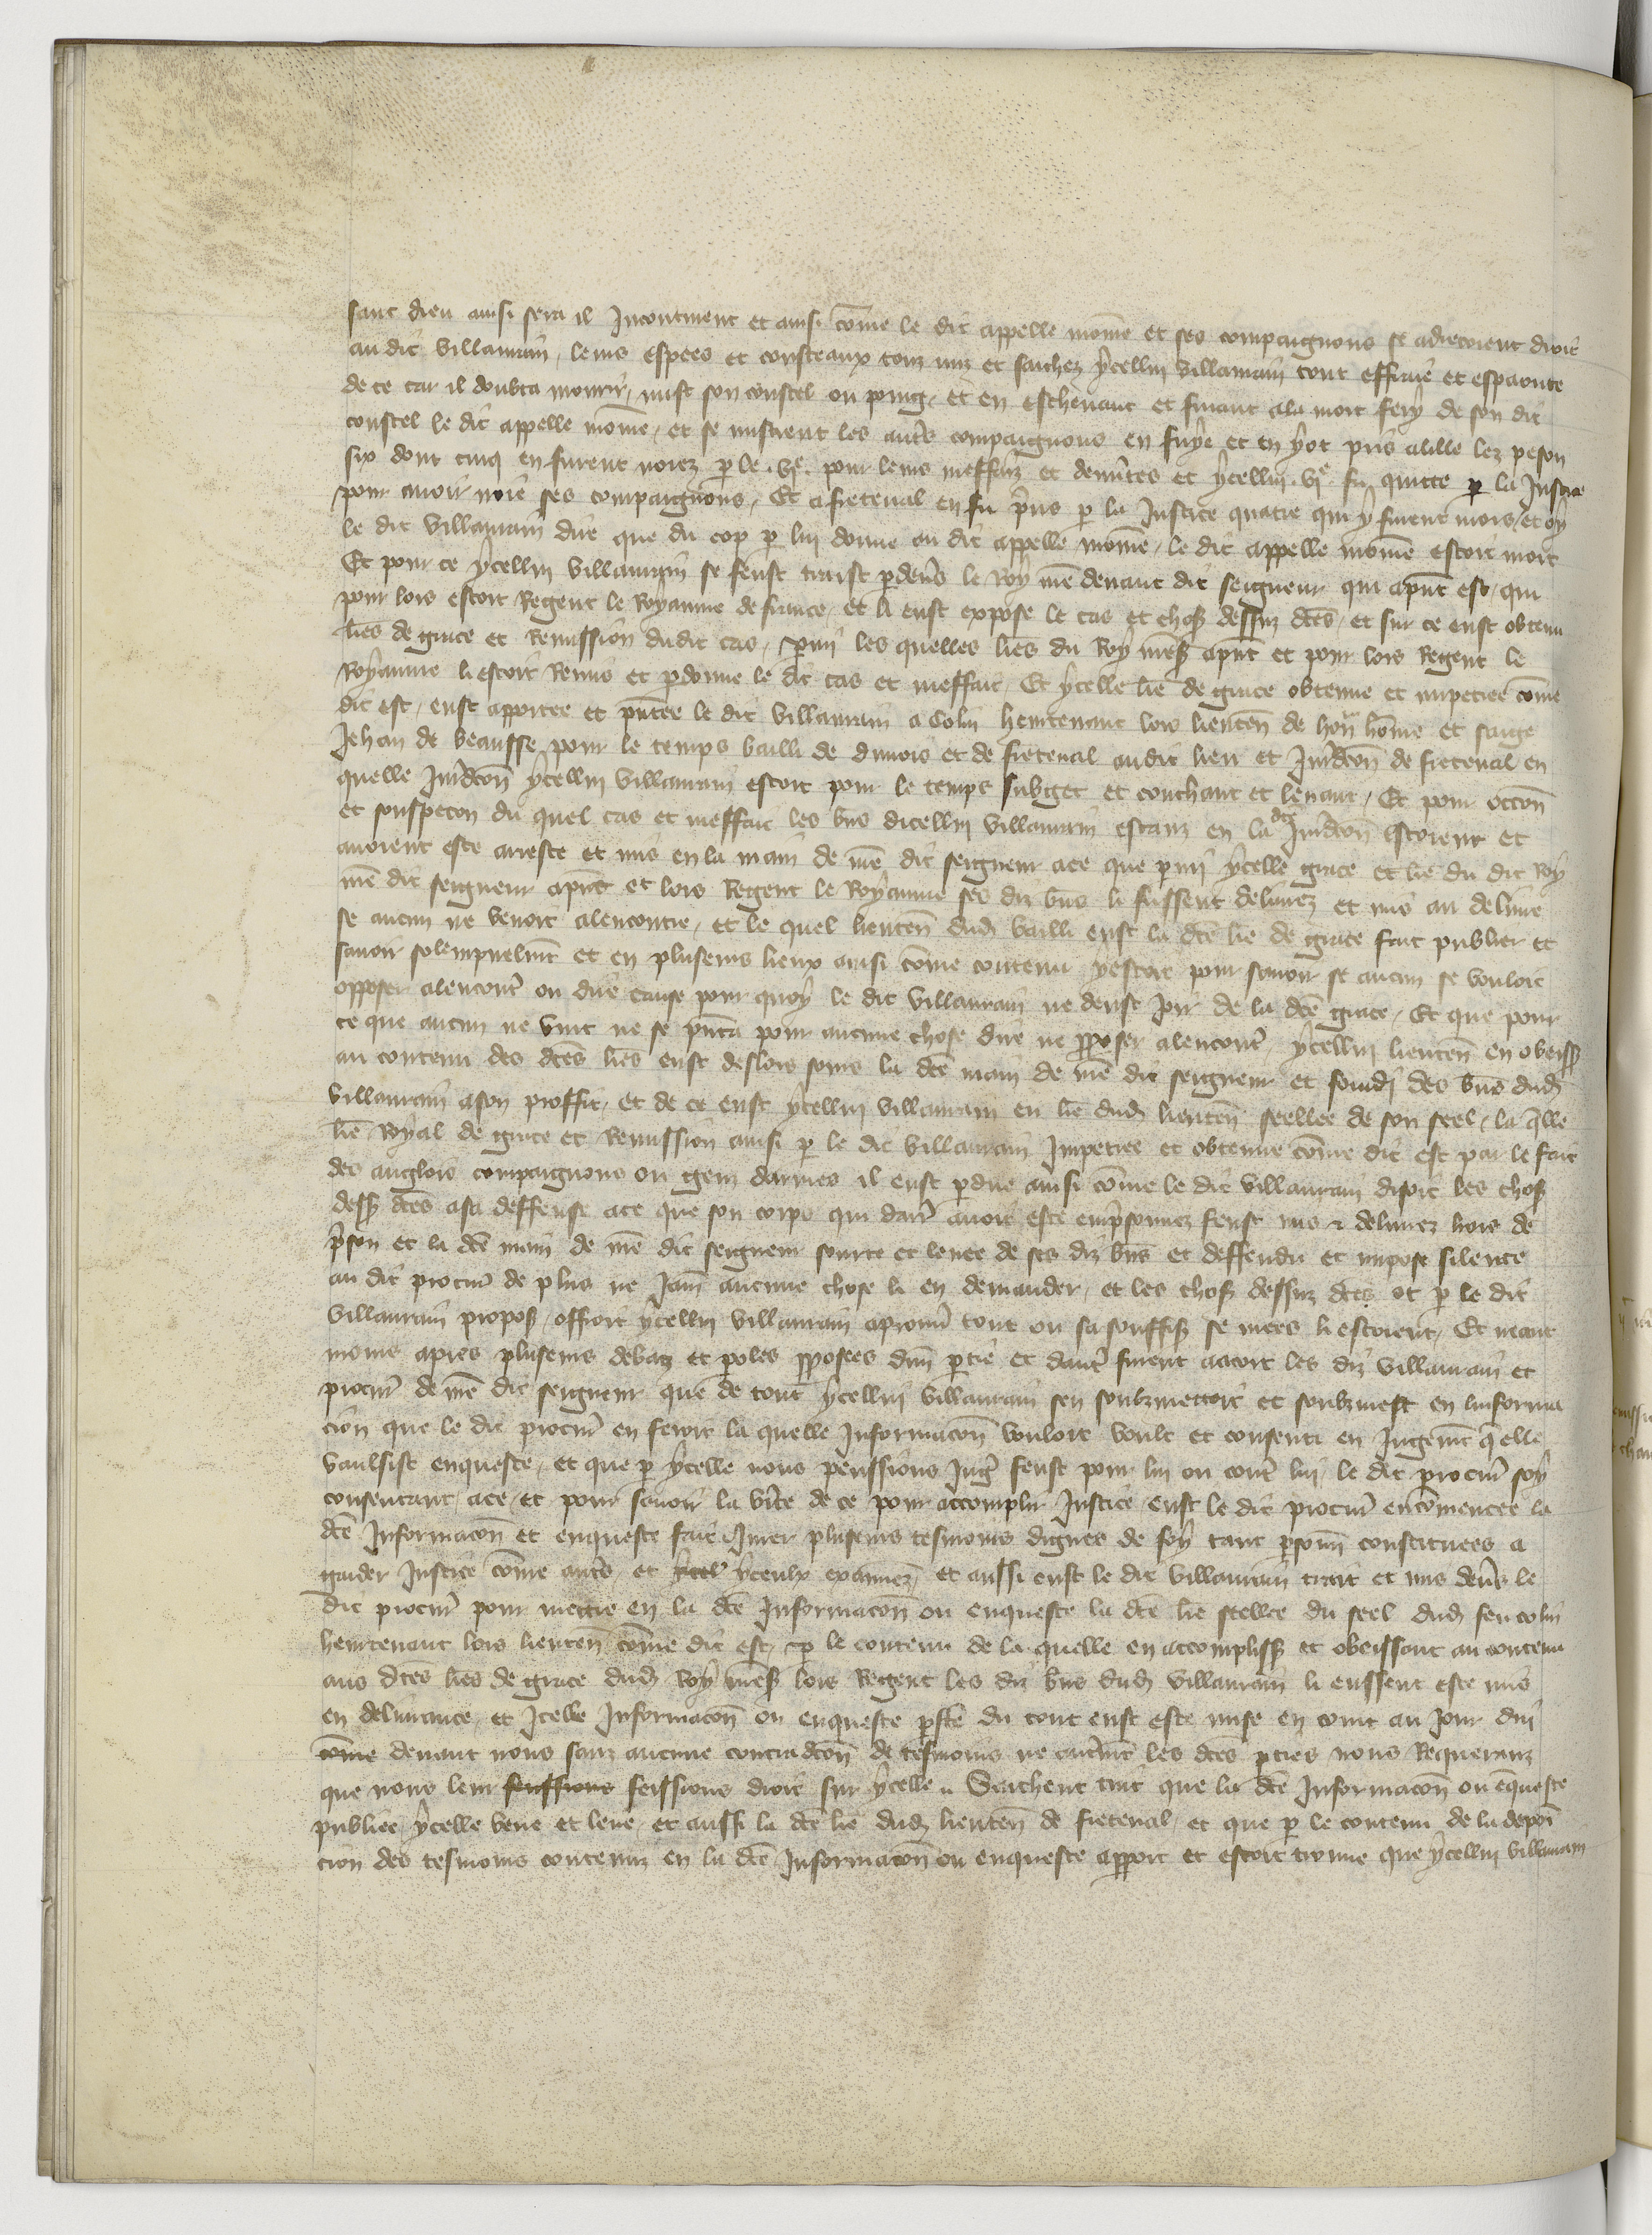 sanc dieu ainsi sera il Incontinent et ainsi cōme le dit appelle momē et ses compaignons se adrecoient droit
au dit villaurain, leurs espees et cousteaux touz nuz et sachez ycellui villaurain tout effraie et espaonte
de ce car il doubta mourir, mist son coustel ou poing, et en eschevant et fuiant ala mort fery de son dit
coustel le dit appelle momē, et se mistrent les autēs compaignons en fuye et en y ot pris alille lez peson
six dont cinq en furent noiez p le .vjͤ. pour leurs meffaiz et demītes et ycellui .vjͤ. fu quicte p la Justice
pour avoir noie ses compaignons, Et a freteval en fu pris p la Justice quatre qui y furent mors, et oy
le dit villaurain dire que du cop p lui donne au dit appelle momē, le dit appelle momē estoit mort
Et pour ce ycellui villaurain se feust traist pdevs le Roy mē devant dit seigneur qui apnt est, qui
pour lors estoit Regent le Royaume de france, et li eust expose le cas et choß dessuz dcēs, et sur ce eust obtenu
lrēs de grace et Remission dudit cas, pmi les quelles lrēs du Roy mēß apnt et pour lors Regent le
Royaume li estoit Remis et pdonne le dit cas et meffait, Et ycelle lrē de grace obtenue et impetree cōme
dit est, eust apportee et pntee le dit villaurain a Colin hemtenant lors lieuten̄ de hon̄ hōme et saige
Jehan de beausse pour le temps bailli de dunois et de freteval audit lieu et Jurdcōn de freteval en
quelle Jurdcōn ycellui villaurain estoit pour le temps subget et couchant et levant, Et pour occōn
et souspecon du quel cas et meffait les bn̄s dicellui villaurain estanz en la dcē Jurdcōn estoient et
avoient este areste et mis en la main de mē dit seigneur ace que pmi ycelle grace et lrē du dit Roy
mē dit seigneur apnt et lors Regent le Royaume ses diz bn̄s li fussent delivrez et mis au delivre
se aucun ne venoit alencontre, et le quel lieuten̄ dud bailli eust la dcē lrē de grace fait publier et
savoir solempnelmt et en pluseurs lieux ainsi cōme contenu y estoit pour savoir se aucun se vouloit
opposer alencont ou dire cause pour quoy le dit villaurain ne deust Joir de la dcē grace, Et que pour
ce que aucun ne vint ne se pnta pour aucune chose dire ne pposer alencont, ycellui lieuten̄ en obeissß
au contenu des dcēs lrēs eust deslors souis la dcē main de mē dit seigneur et des bn̄s dud
villaurain ason proffit, et de ce eust ycellui villaurain eu lrē dud lieuten̄ seellee de son seel, la qlle
lrē Royal de grace et Remission ainsi p le dit villaurain Impetree et obtenue cōme dit est par le fait
des anglois compaignons ou gens darmes il eust pdue ainsi cōme le dit villaurain disoit les choß
dessß dcēs asa deffense ace que son corps qui darr avoit este emprisonnez feust mis et delivrez hors de
prison et la dcē main de mē dit seigneur sourse et levee de ses diz bn̄s et deffendu et impose silence
au dit procur̄ de plus ne Jam̄ aucune chose li en demander, et les choß dessuz dcēs ot p le dit
villaurain proposß, offroit ycellui villaurain aprouv̄ tout ou sa souffisß se mees li estoient, Et neant
moins apres pluseurs debaz et ples pposees dun ptie et dautr furent acort les diz villaurain et
procur̄ de mē dit seigneur que de tout ycellui villaurain sen soubzmettoit et soubzmest en linforma
cion que le dit procur̄ en feroit la quelle Informacōn vouloit voult et consenti en Jugemt qelle
vaulsist enqueste, et que p ycelle nous peussions Jug feust pour lui ou cont lui, le dit procur̄ soy
consentant ace, et pour savoir la vite de ce pour accomplir Justice eust le dit procur̄ encōmencee la
dcē Informacōn et enqueste fait Jurer pluseurs tesmoins dignes de foy tant psonn̄ constituees a
garder Justice cōme autēs, et yceulx examinez, et aussi eust le dit villaurain trait et mis devs le
dit procur̄ pour mettre en la dcē Informacōn ou enqueste la dcē lrē seellee du seel dud feu colin
hemtenant lors lieuten̄ cōme dit est, p le contenu de la quelle en accomplissß et obeissant au contenu
aus dcēs lrēs de grace dud Roy mēß lors Regent les diz bn̄s dud villaurain li eussent este mis
en delivrance, et Icelle Informacōn ou enqueste pfcē du tout eust este mise en court au Jour dui
cōme devant nous sanz aucune contradcōn de tesmoins ne autmt les dcēs pties nous Requeranz
que nous leur feussions feissions droit sur ycelle. Saichent tuit que la dcē Informacōn ou enqueste
publiee ycelle veue et leue, et aussi la dcē lrē dud lieuten̄ de freteval, et que p le contenu de la deposi
cion des tesmoins contenuz en la dcē Informacōn ou enqueste appoit et estoit trouve que ycellui villaurain